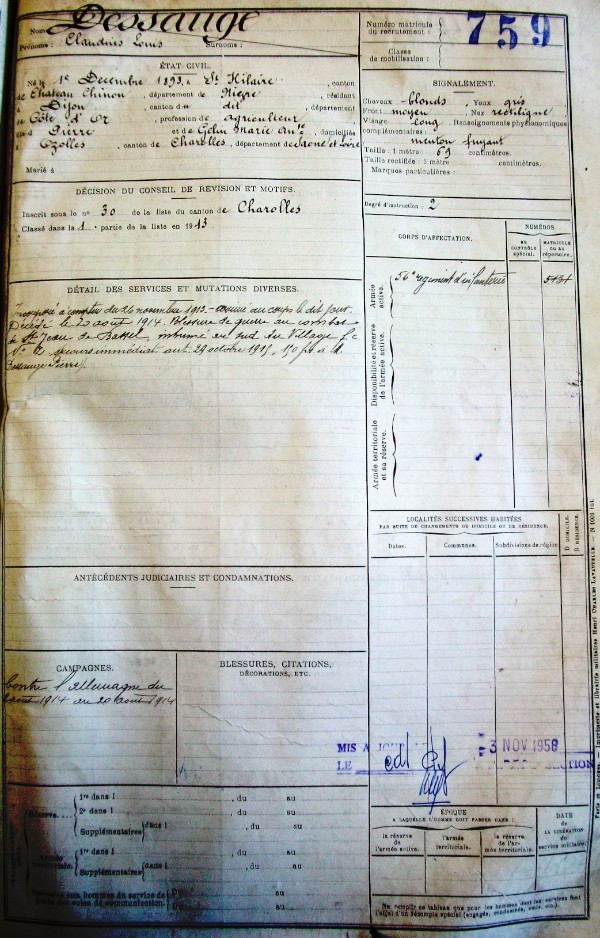 Nom : Dessauge
Prénoms : Claudius Louis Surnoms :
Numéro matricule
du recrutement :
759
Classe
de mobilisation :
ÉTAT CIVIL.
Né le 1er Décembre 1893, à St Hilaire, canton
de Chateau Chinon, département de Nièvre, résidant
à Dijon canton du dit, département
de Côte d'Or, profession de Agriculteur
fils de Pierre et de Gelin Marie domiciliés
à Ozolles, canton de Charolles, département de Saône et Loire
Marié à
SIGNALEMENT.
Cheveux blonds, Yeux gris
Front moyen, Nez rectiligne
Visage long, Renseignements physionomiques
complémentaires :
menton fuyant
Taille : 1 mètre 69 centimètres.
Taille rectifiée : 1 mètre centimètres.
Marques particulières :
Degré d'instruction : 2
DÉCISION DU CONSEIL DE REVISION ET MOTIFS.
Inscrit sous le n° 30 de la liste du canton de Charolles
Classé dans la 1 partie de la liste en 1913
DÉTAIL DES SERVICES ET MUTATIONS DIVERSES.
Incorporé à compter du 26 novembre 1913. arrivé au corps le dit jour.
Décédé le 20 août 1914. Blessure de guerre au combat
de St Jean de Bassel inhumé au sud du Village
secours immédiat 29 octobre 1915, 150 frs à M.
Dessauge Pierre
CORPS D'AFFECTATION.
NUMÉROS
AU CONTRÔLE spécial.
MATRICULE OU AU répertoire.
Armée active.
56e regiment d'infanterie
Disponibilité et réserve de l'armée active.
Armée territoriale et sa réserve.
LOCALITÉS SUCCESSIVES HABITÉES
PAR SUITE DE CHANGEMENTS DE DOMICILE OU DE RÉSIDENCE.
Dates.
Communes.
Subdivisions de région
D DOMICILE.
R RÉSIDENCE.
ANTÉCÉDENTS JUDICIAIRES ET CONDAMNATIONS.
CAMPAGNES.
Contre l'allemagne du
août 1914 au 20 août 1914
BLESSURES, CITATIONS,
DÉCORATIONS, ETC.
MIS A JOUR
LE
3 NOV 1958
1re dans l , du au
Réserve. 2e dans l , du au
Supplémentaires dans l , du au
1re dans l , du au
Supplémentaires dans l , du au
au
au
ÉPOQUE
A LAQUELLE L'HOMME DOIT PASSER DANS :
la réserve de l'armée active.
l'armée territoriale.
la réserve de l'armée territoriale.
DATE de LA LIBÉRATION du service militaire.
Ne remplir ce tableau que pour les hommes dont les services font
l'objet d'un décompte spécial (engagés, condamnés, omis, etc.)